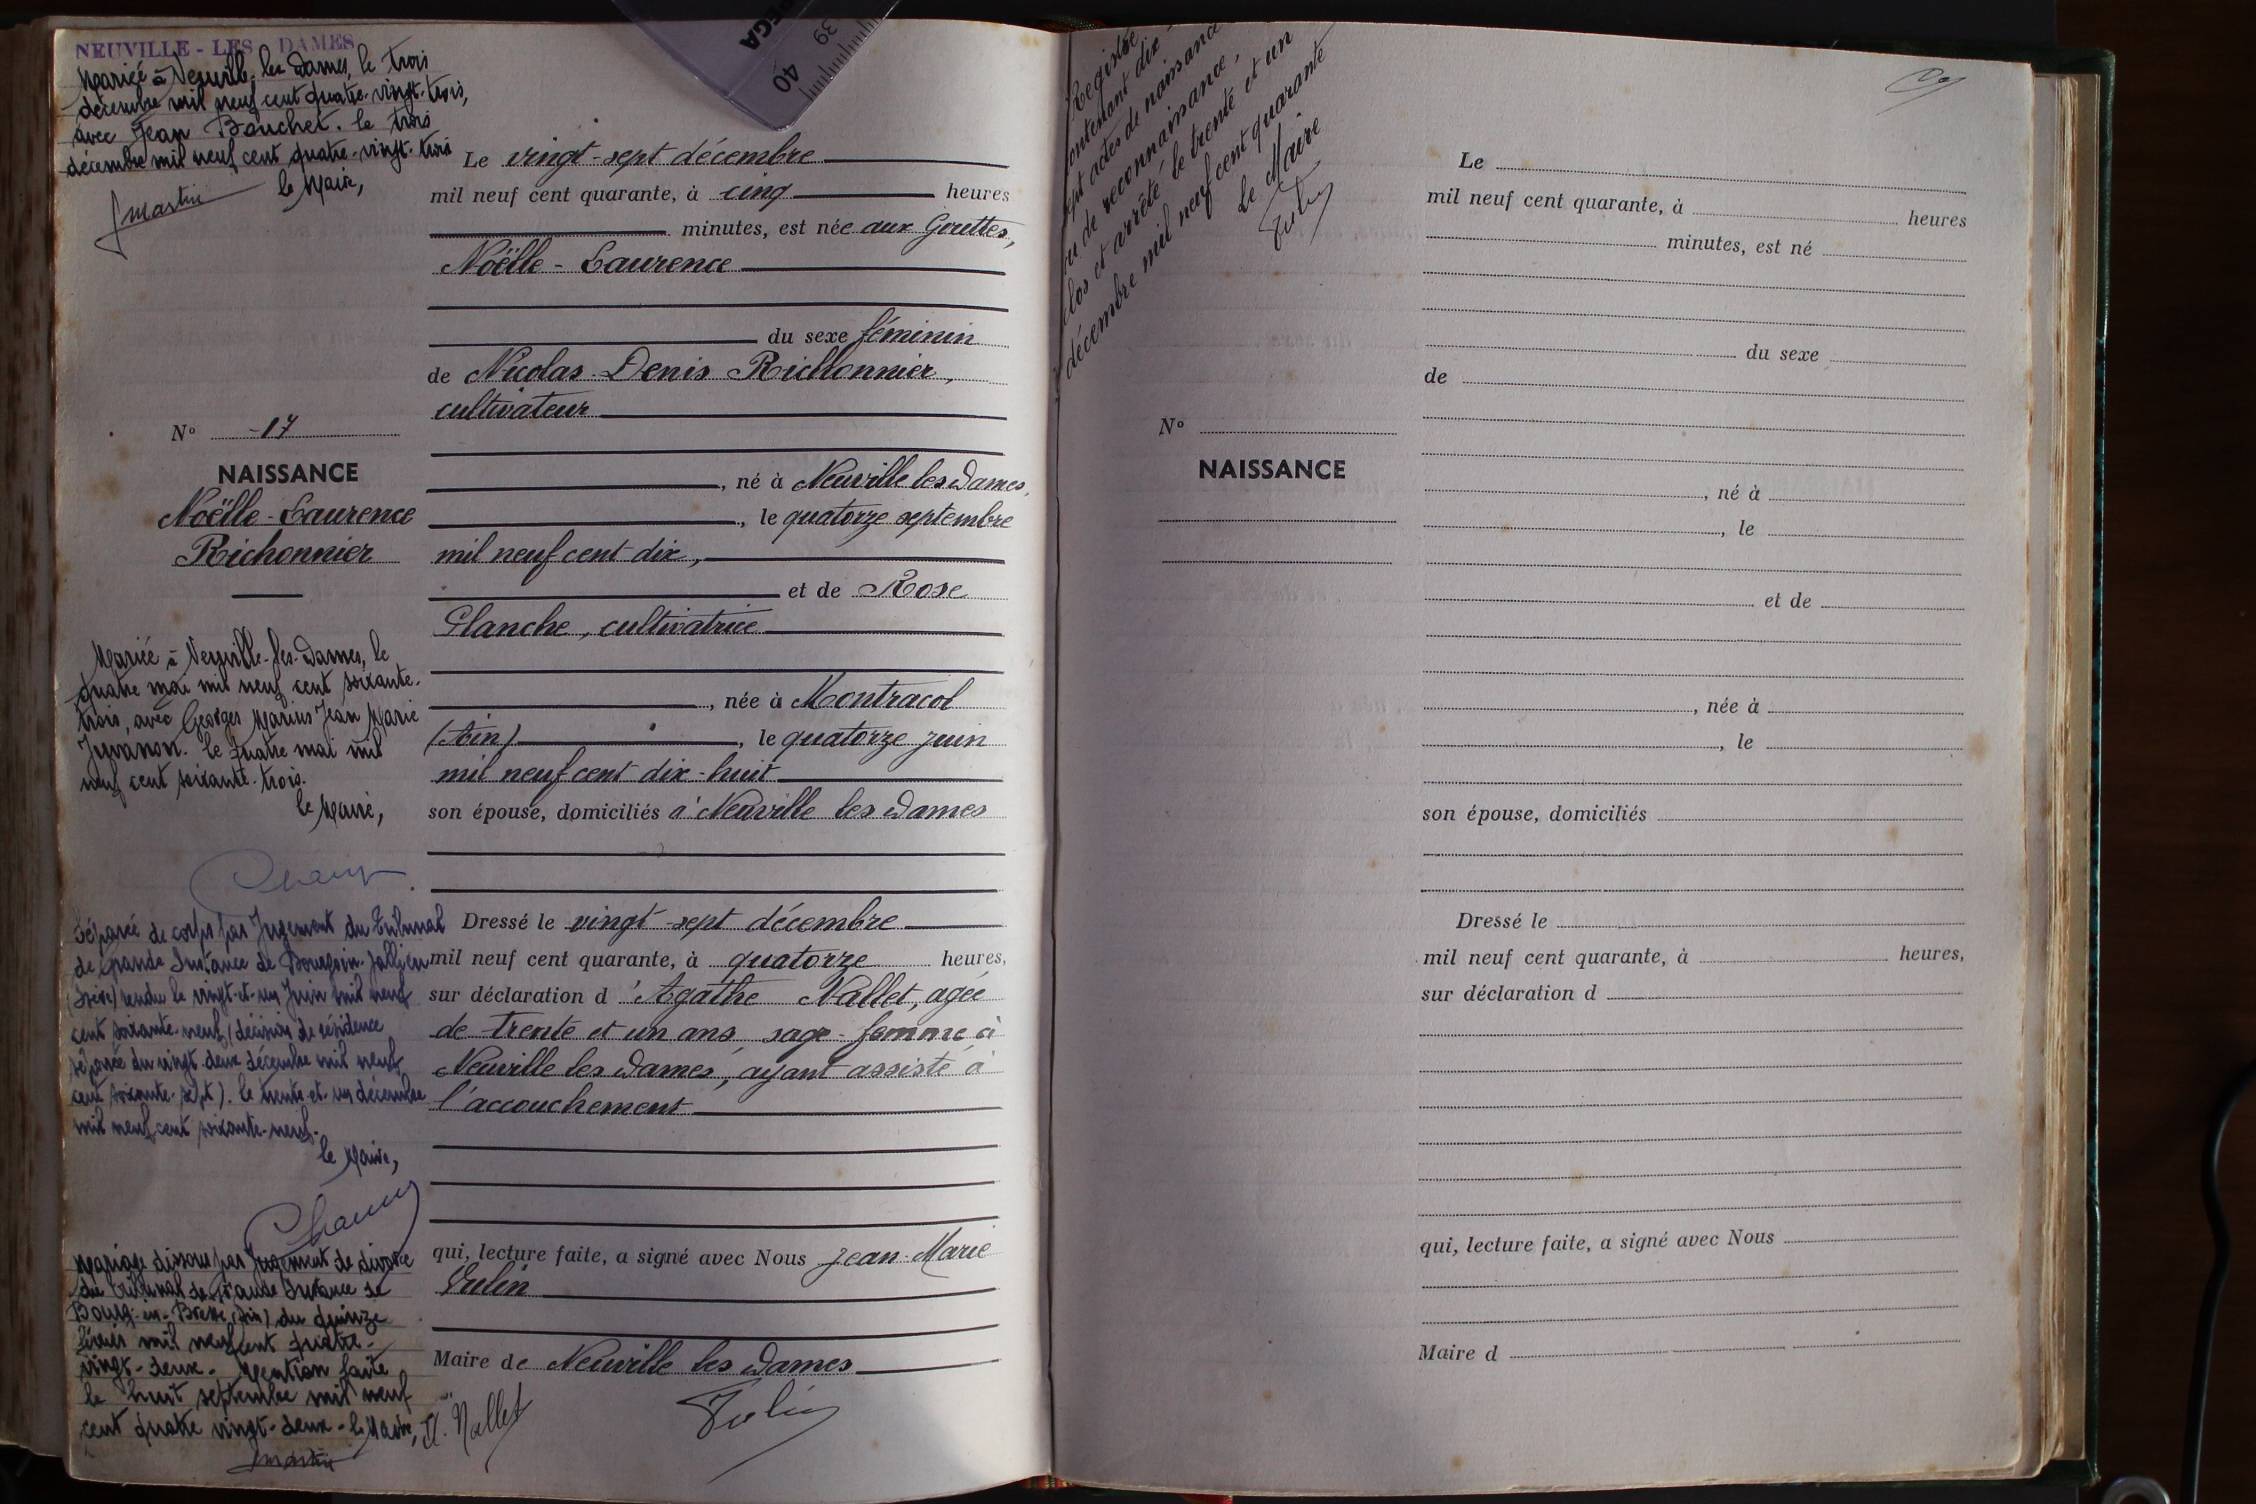 NEUVILLE - LES - DAMES
Mariée à Neuville-les-Dames, le trois
décembre mil neuf cent quatre-vingt-trois,
avec Jean Bouchet. le trois
décembre mil neuf cent quatre-vingt-trois
le Maire,
Jmartin
N° 17
NAISSANCE
Noëlle-Laurence
Richonnier
Mariée à Neuville-les-Dames, le
quatre mai mil neuf cent soixante-
trois, avec Georges Marius Jean Marie
Juvanon. le quatre mai mil
neuf cent soixante-trois.
le Maire,
Séparée de corps par Jugement du Tribunal
de Grande Instance de Bourgoin-Jallieu
(Isère) rendu le vingt-et-un Juin mil neuf
cent soixante-neuf (décision de résidence
séparée du vingt-deux décembre mil neuf
cent soixante-sept). le trente-et-un décembre
mil neuf cent soixante-neuf.
le Maire,
Mariage dissous par Jugement de divorce
du Tribunal de Grande Instance de
Bourg-en-Bresse (Ain) du quinze
février mil neuf cent quatre-
vingt-deux. Mention faite
le huit septembre mil neuf
cent quatre vingt-deux - le Maire,
Jmartin
Le vingt-sept décembre
mil neuf cent quarante, à cinq heures
minutes, est née aux Gouttes,
Noëlle-Laurence
du sexe féminin
de Nicolas-Denis Richonnier,
cultivateur
, né à Neuville les Dames,
, le quatorze septembre
mil neuf cent dix,
et de Rose
Planche, cultivatrice
, née à Montracol
(Ain), le quatorze juin
mil neuf cent dix-huit
son épouse, domiciliés à Neuville les Dames
Dressé le vingt-sept décembre
mil neuf cent quarante, à quatorze heures,
sur déclaration d'Agathe Nallet, agée
de trente et un ans sage-femme à
Neuville les Dames, ayant assisté à
l'accouchement
qui, lecture faite, a signé avec Nous Jean-Marie
Tulin
Maire de Neuville les Dames
A. Nallet
Tulin
40
39
Registre
contenant dix-
sept actes de naissance
ou de reconnaissance,
clos et arrêté le trente et un
décembre mil neuf cent quarante
Le Maire
Tulin
N°
NAISSANCE
Le
mil neuf cent quarante, à heures
minutes, est né
du sexe
de
, né à
, le
et de
, née à
, le
son épouse, domiciliés
Dressé le
mil neuf cent quarante, à heures,
sur déclaration d
qui, lecture faite, a signé avec Nous
Maire d